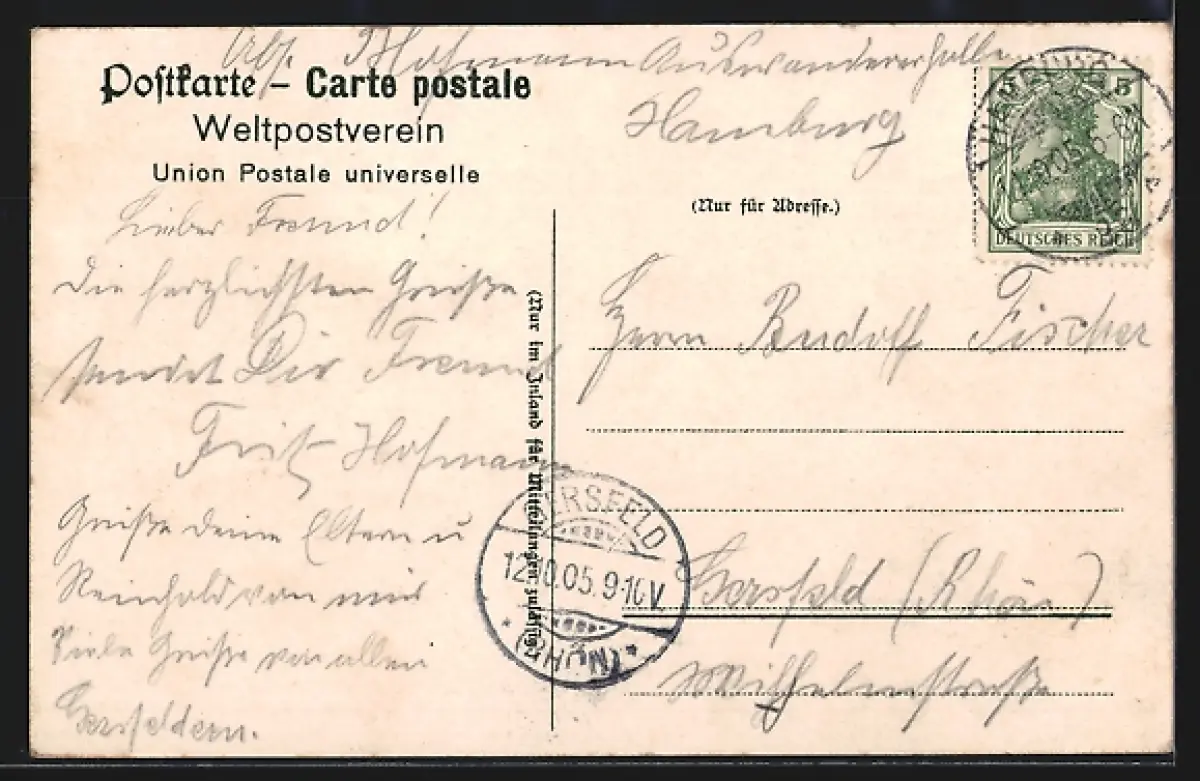 Abs. Hofmann Auswandererhallen
Hamburg
Postkarte – Carte postale
Weltpostverein
Union Postale universelle
(Nur für Adresse.)
(Nur im Inland für Mitteilungen zulässig)
Lieber Freund!
Die herzlichsten Grüße
sendet Dir Freund
Fritz Hofmann
Grüße deine Eltern u
Reinhold von mir
Viele Grüße von allen
Gersfeldern.
HAMBURG
5
DEUTSCHES REICH
Herrn Rudolf Fischer
Gersfeld (Rhön)
Wilhelmstraße
GERSFELD
12.10.05.9-10V.
* (RHÖN) *